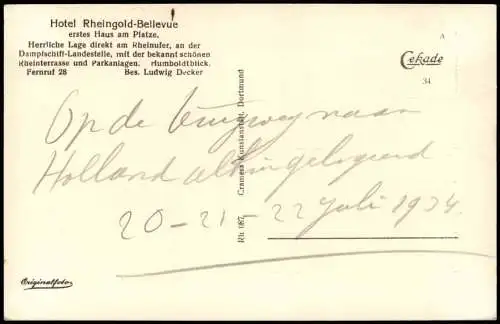 Hotel Rheingold-Bellevue
erstes Haus am Platze.
Herrliche Lage direkt am Rheinufer, an der
Dampfschiff-Landestelle, mit der bekannt schönen
Rheinterrasse und Parkanlagen. Humboldtblick.
Fernruf 28 Bes. Ludwig Decker
A
Cekade
34
Op de terugweg naar
Holland alhier gelogeerd
20 - 21 - 22 Juli 1934.
Rh 087 Cramers Kunstanstalt, Dortmund
Originalfoto